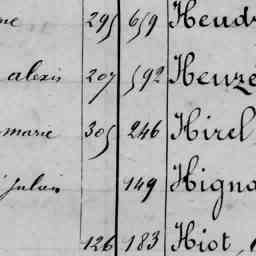 ne 295 659 Heudr
alexis 207 592 Heuzé
marie 305 246 Hirel
Julien 149 Higno
126 183 Hiot,